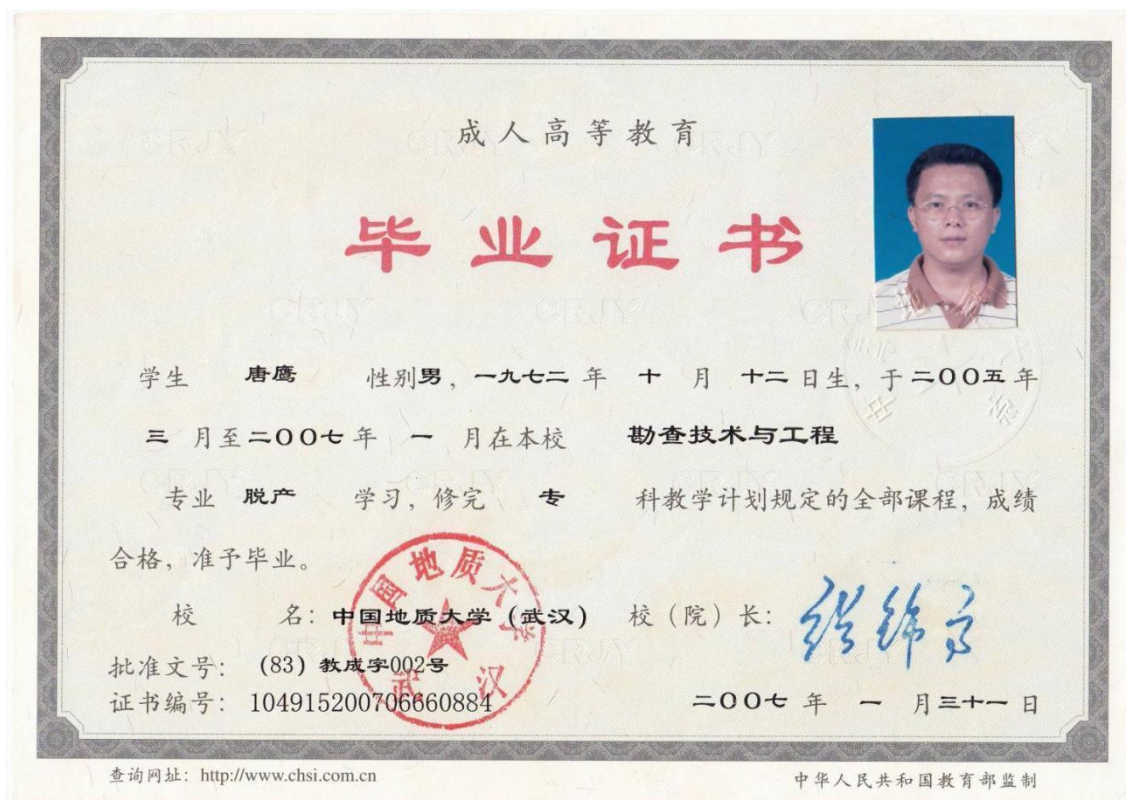 成人高等教育
毕业证书
学生 唐鹰 性别男，一九七二 年 十 月 十二 日生，于 二00五 年
三 月至 二00七 年 一 月在本校 勘查技术与工程
专业 脱产 学习，修完 专 科教学计划规定的全部课程，成绩
合格，准予毕业。
校 名：中国地质大学（武汉） 校（院）长：
批准文号：（83）教成字002号
证书编号：104915200706660884 二00七 年 一 月三十一 日
中国地质大学
武汉
查询网址：http://www.chsi.com.cn
中华人民共和国教育部监制
CRJY